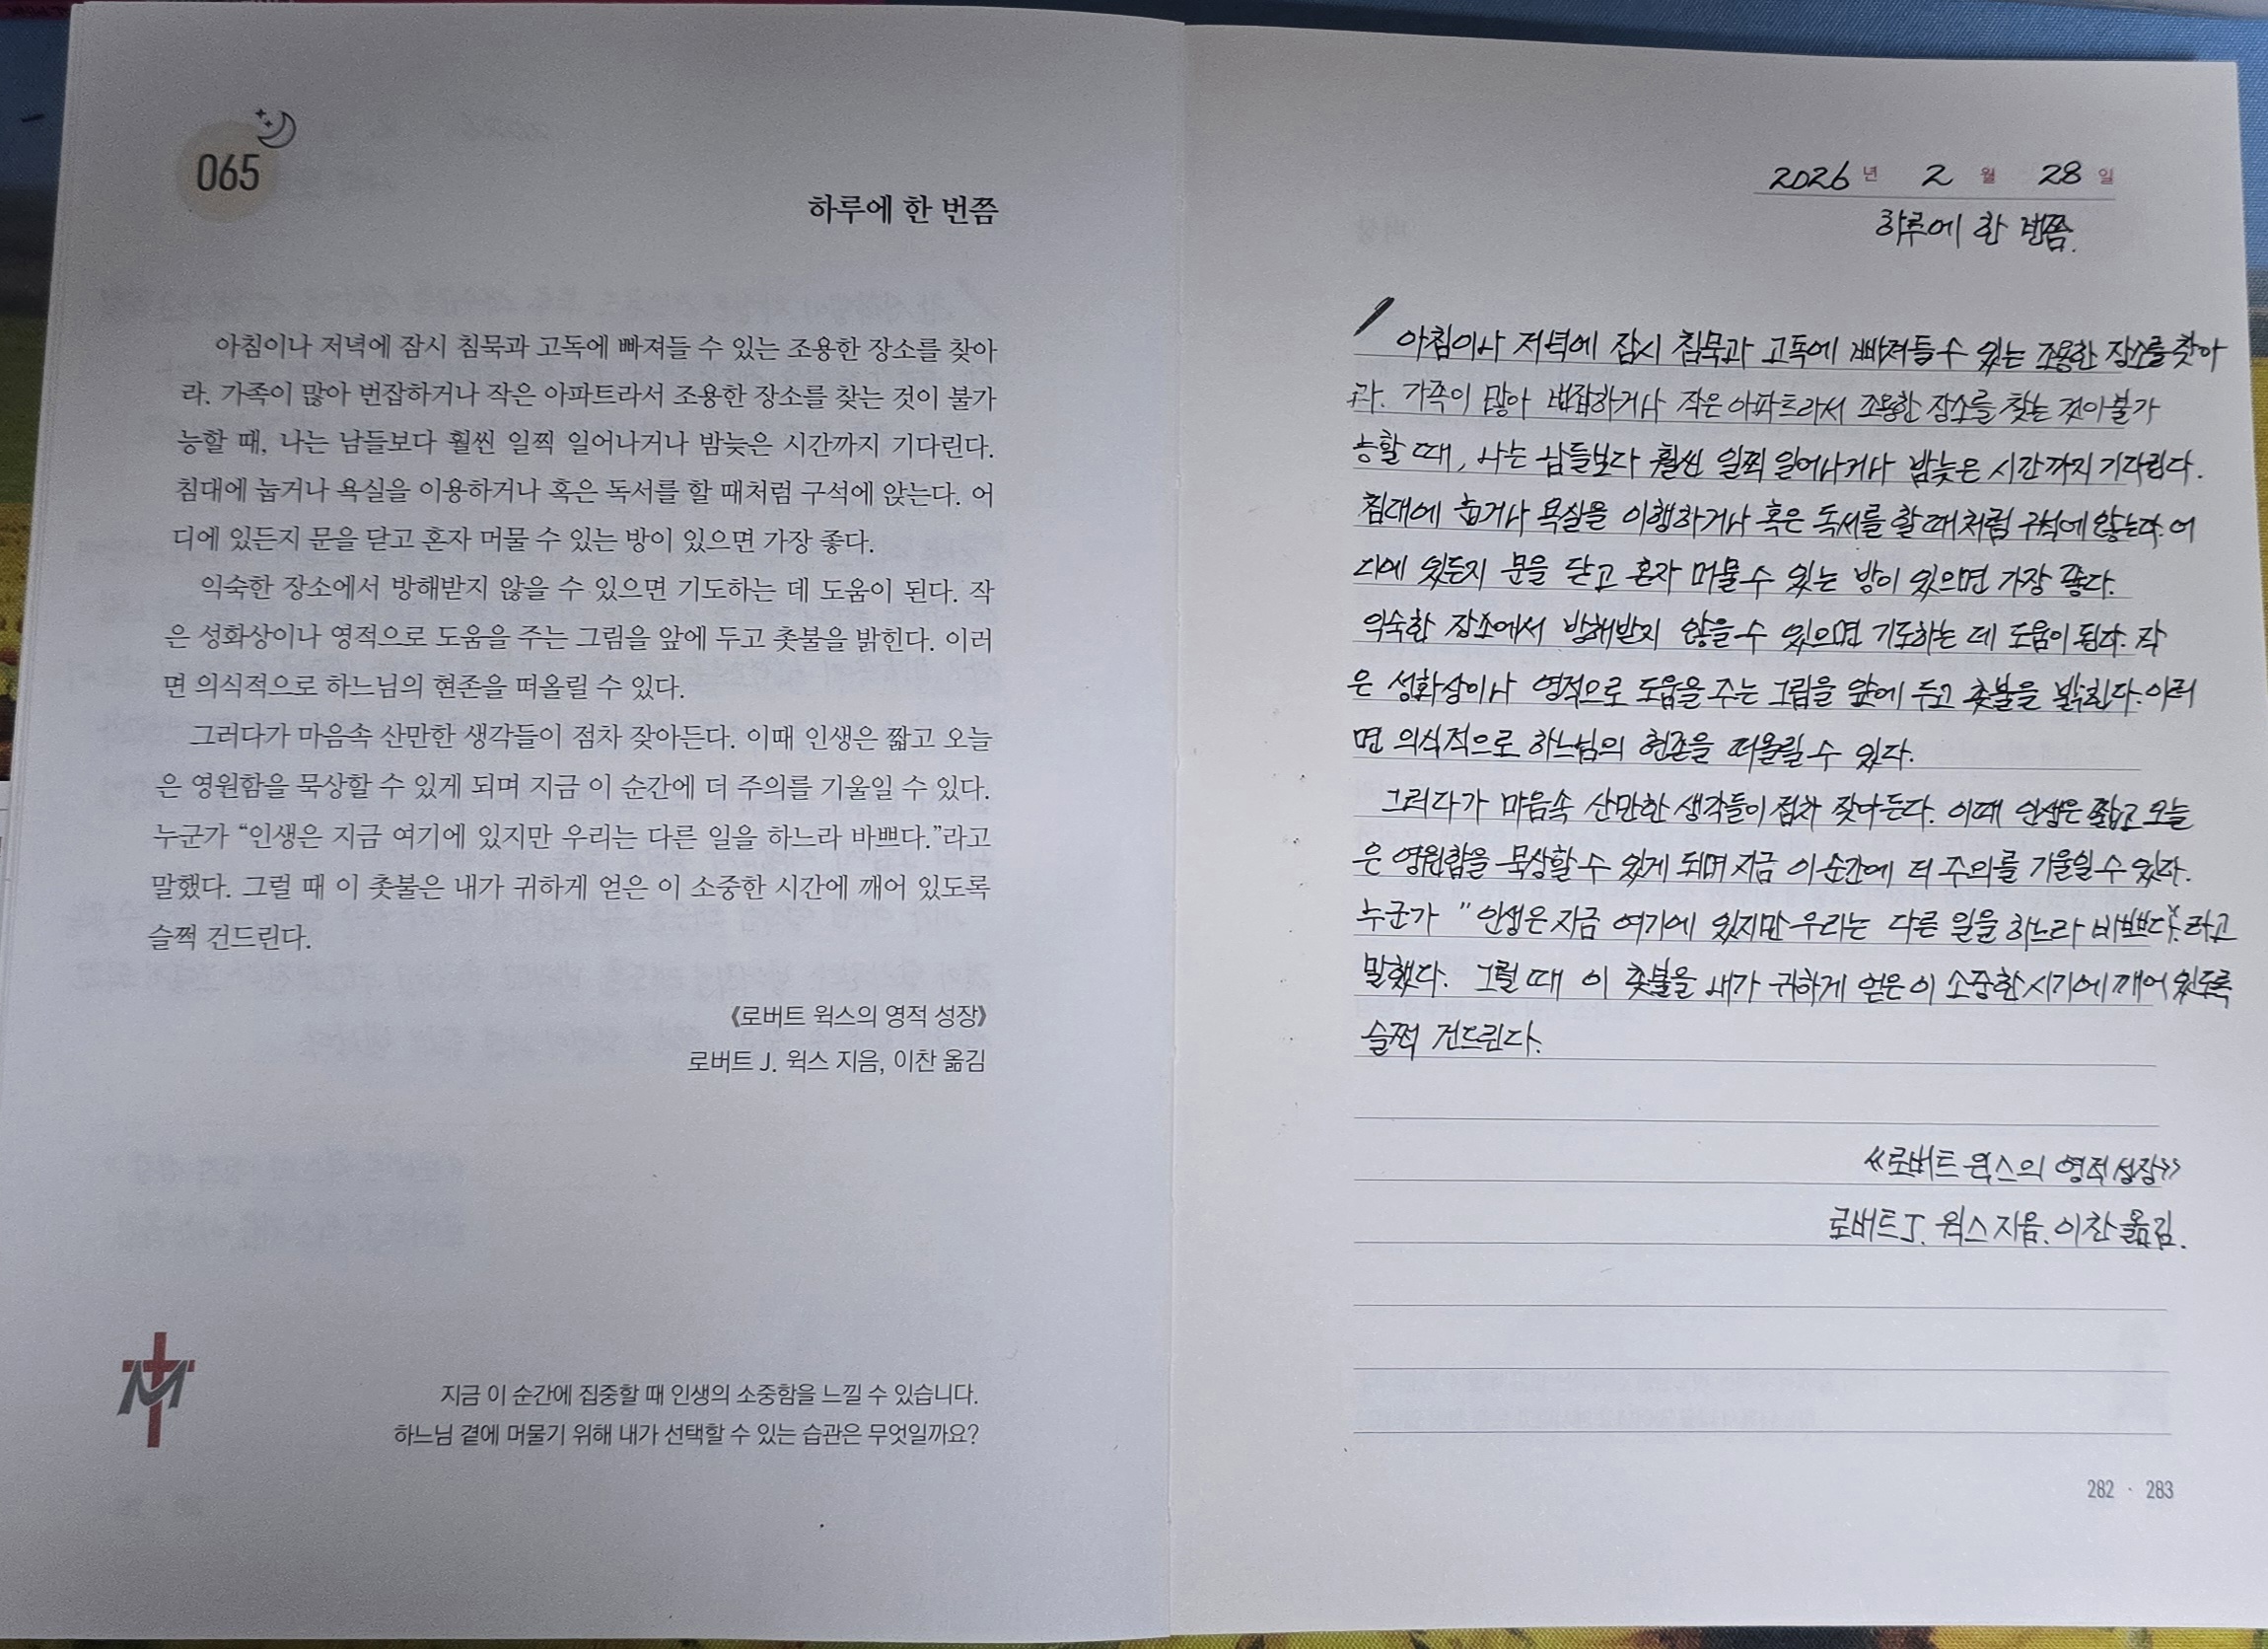 065
하루에 한 번쯤
아침이나 저녁에 잠시 침묵과 고독에 빠져들 수 있는 조용한 장소를 찾아
라. 가족이 많아 번잡하거나 작은 아파트라서 조용한 장소를 찾는 것이 불가
능할 때, 나는 남들보다 훨씬 일찍 일어나거나 밤늦은 시간까지 기다린다.
침대에 눕거나 욕실을 이용하거나 혹은 독서를 할 때처럼 구석에 앉는다. 어
디에 있든지 문을 닫고 혼자 머물 수 있는 방이 있으면 가장 좋다.
익숙한 장소에서 방해받지 않을 수 있으면 기도하는 데 도움이 된다. 작
은 성화상이나 영적으로 도움을 주는 그림을 앞에 두고 촛불을 밝힌다. 이러
면 의식적으로 하느님의 현존을 떠올릴 수 있다.
그러다가 마음속 산만한 생각들이 점차 잦아든다. 이때 인생은 짧고 오늘
은 영원함을 묵상할 수 있게 되며 지금 이 순간에 더 주의를 기울일 수 있다.
누군가 “인생은 지금 여기에 있지만 우리는 다른 일을 하느라 바쁘다.”라고
말했다. 그럴 때 이 촛불은 내가 귀하게 얻은 이 소중한 시간에 깨어 있도록
슬쩍 건드린다.
《로버트 윅스의 영적 성장》
로버트 J. 윅스 지음, 이찬 옮김
지금 이 순간에 집중할 때 인생의 소중함을 느낄 수 있습니다.
하느님 곁에 머물기 위해 내가 선택할 수 있는 습관은 무엇일까요?
2026년 2월 28일
하루에 한 번쯤.
아침이나 저녁에 잠시 침묵과 고독에 빠져들 수 있는 조용한 장소를 찾아
라. 가족이 많아 번잡하거나 작은 아파트라서 조용한 장소를 찾는 것이 불가
능할 때, 나는 남들보다 훨씬 일찍 일어나거나 밤늦은 시간까지 기다린다.
침대에 눕거나 욕실을 이행하거나 혹은 독서를 할 때처럼 구석에 앉는다. 어
디에 있든지 문을 닫고 혼자 머물 수 있는 방이 있으면 가장 좋다.
익숙한 장소에서 방해받지 않을 수 있으면 기도하는 데 도움이 된다. 작
은 성화상이나 영적으로 도움을 주는 그림을 앞에 두고 촛불을 밝힌다. 이러
면 의식적으로 하느님의 현존을 떠올릴 수 있다.
그러다가 마음속 산만한 생각들이 점차 잦아든다. 이때 인생은 짧고 오늘
은 영원함을 묵상할 수 있게 되며 지금 이 순간에 더 주의를 기울일 수 있다.
누군가 "인생은 지금 여기에 있지만 우리는 다른 일을 하느라 바쁘다."라고
말했다. 그럴 때 이 촛불을 내가 귀하게 얻은 이 소중한 시기에 깨어 있도록
슬쩍 건드린다.
《로버트 윅스의 영적 성장》
로버트 J. 윅스 지음. 이찬 옮김.
282 · 283